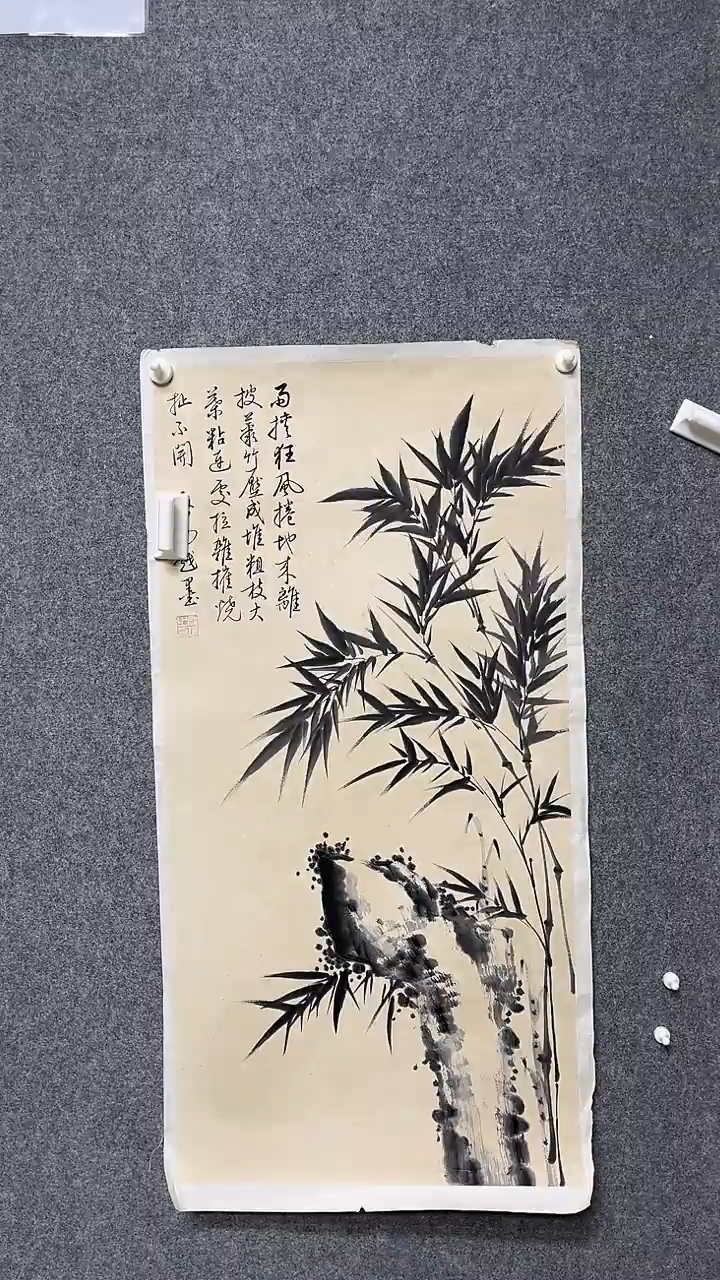 雨挟狂風捲地来離
披叢竹壓成堆粗枝大
葉粘連處拉雜摧燒
扯不開
戲墨